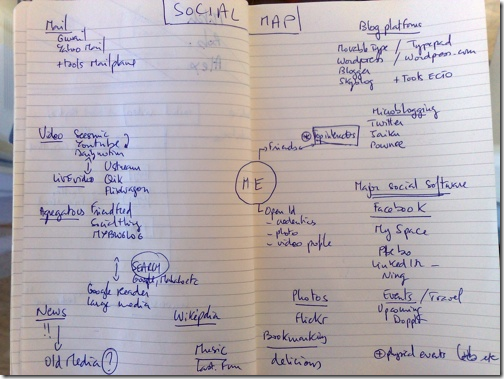 SOCIAL MAP
Mail
Gmail
Yahoo Mail
+ tools Mailplane
Video
Seesmic
Youtube
Dailymotion
Ustream
Live Video
Qik
Flixwagon
Aggregators
Friendfeed
Socialthing
MYBLOGLOG
SEARCH
Google, Mahalo etc
Google Reader
News
!!
Old Media ?
Wikipedia
Music
Last.fm
ME
Friends
OpenId
- photo
- video profile
Photos
Flickr
Bookmarking
delicious
Blog platforms
Movable Type / Typepad
Wordpress / Wordpress.com
Blogger
Skyblog + Tools ECTO
Microblogging
Twitter
Jaiku
Pownce
Major social software
Facebook
My Space
Bebo
LinkedIn
Ning
Events / Travel
Upcoming
Dopplr
+ physical events